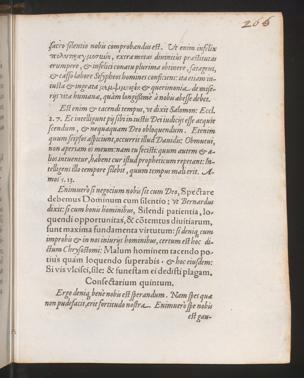 266
sacro silentio nobis comprobandus est. Ut enim infelix
extra metas divinitùs præstitutas
erumpere, & infelici conatu plurima obtinere, satagens,
& casso labore Sisypheos homines conficiens: ita etiam in-
vita & ingrata & querimonia. de mise-
rijs vitæ humanæ, quàm longissimè à nobis abesse debet.
Est enim & tacendi tempus, vt dixit Salomon: Eccl.
2. 7. Et intelligunt pij sibi in iustis Dei iudicijs esse acquie
scendum, & nequaquam Deo obloquendum. Etenim
quum sæpius asciunt, occurrit illud Davidis: Obmutui,
non aperiam os meum: nam tu fecisti: quum autem & a-
lios intuentur, habent cur istud propheticum repetant: In-
telligens illo tempore silebit, quum tempus mali erit. A-
mos 5. 13.
Enimuerò si negocium nobis sit cum Deo, Spectare
debemus Dominum cum silentio; vt Bernardus
dixit: si cum bonis hominibus, Silendi patientia, lo-
quendi opportunitas, & cõtemtus diuitiarum,
sunt maxima fundamenta virtutum: si deniq; cum
improbis & in nos iniurijs hominibus, certum est hoc di-
ctum Chrysostomi: Malum hominem tacendo po-
tiùs quàm loquendo superabis. & hoc eiusdem:
Si vis vlcisci, sile: & funestam ei dedisti plagam.
Consectarium quintum.
Ergo deniq; benè nobis est sperandum. Nam spes quæ
non pudefacit, erit fortitudo nostra. Enimuerò spe nobis
est gau-